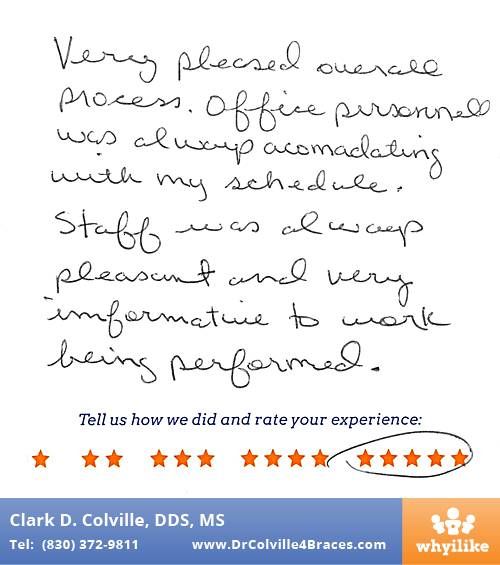 Very pleased overall
process. Office personnell
was always acomadating
with my schedule.
Staff was always
pleasant and very
imformative to work
being performed.
Tell us how we did and rate your experience:
Clark D. Colville, DDS, MS
Tel: (830) 372-9811 www.DrColville4Braces.com
whyilike